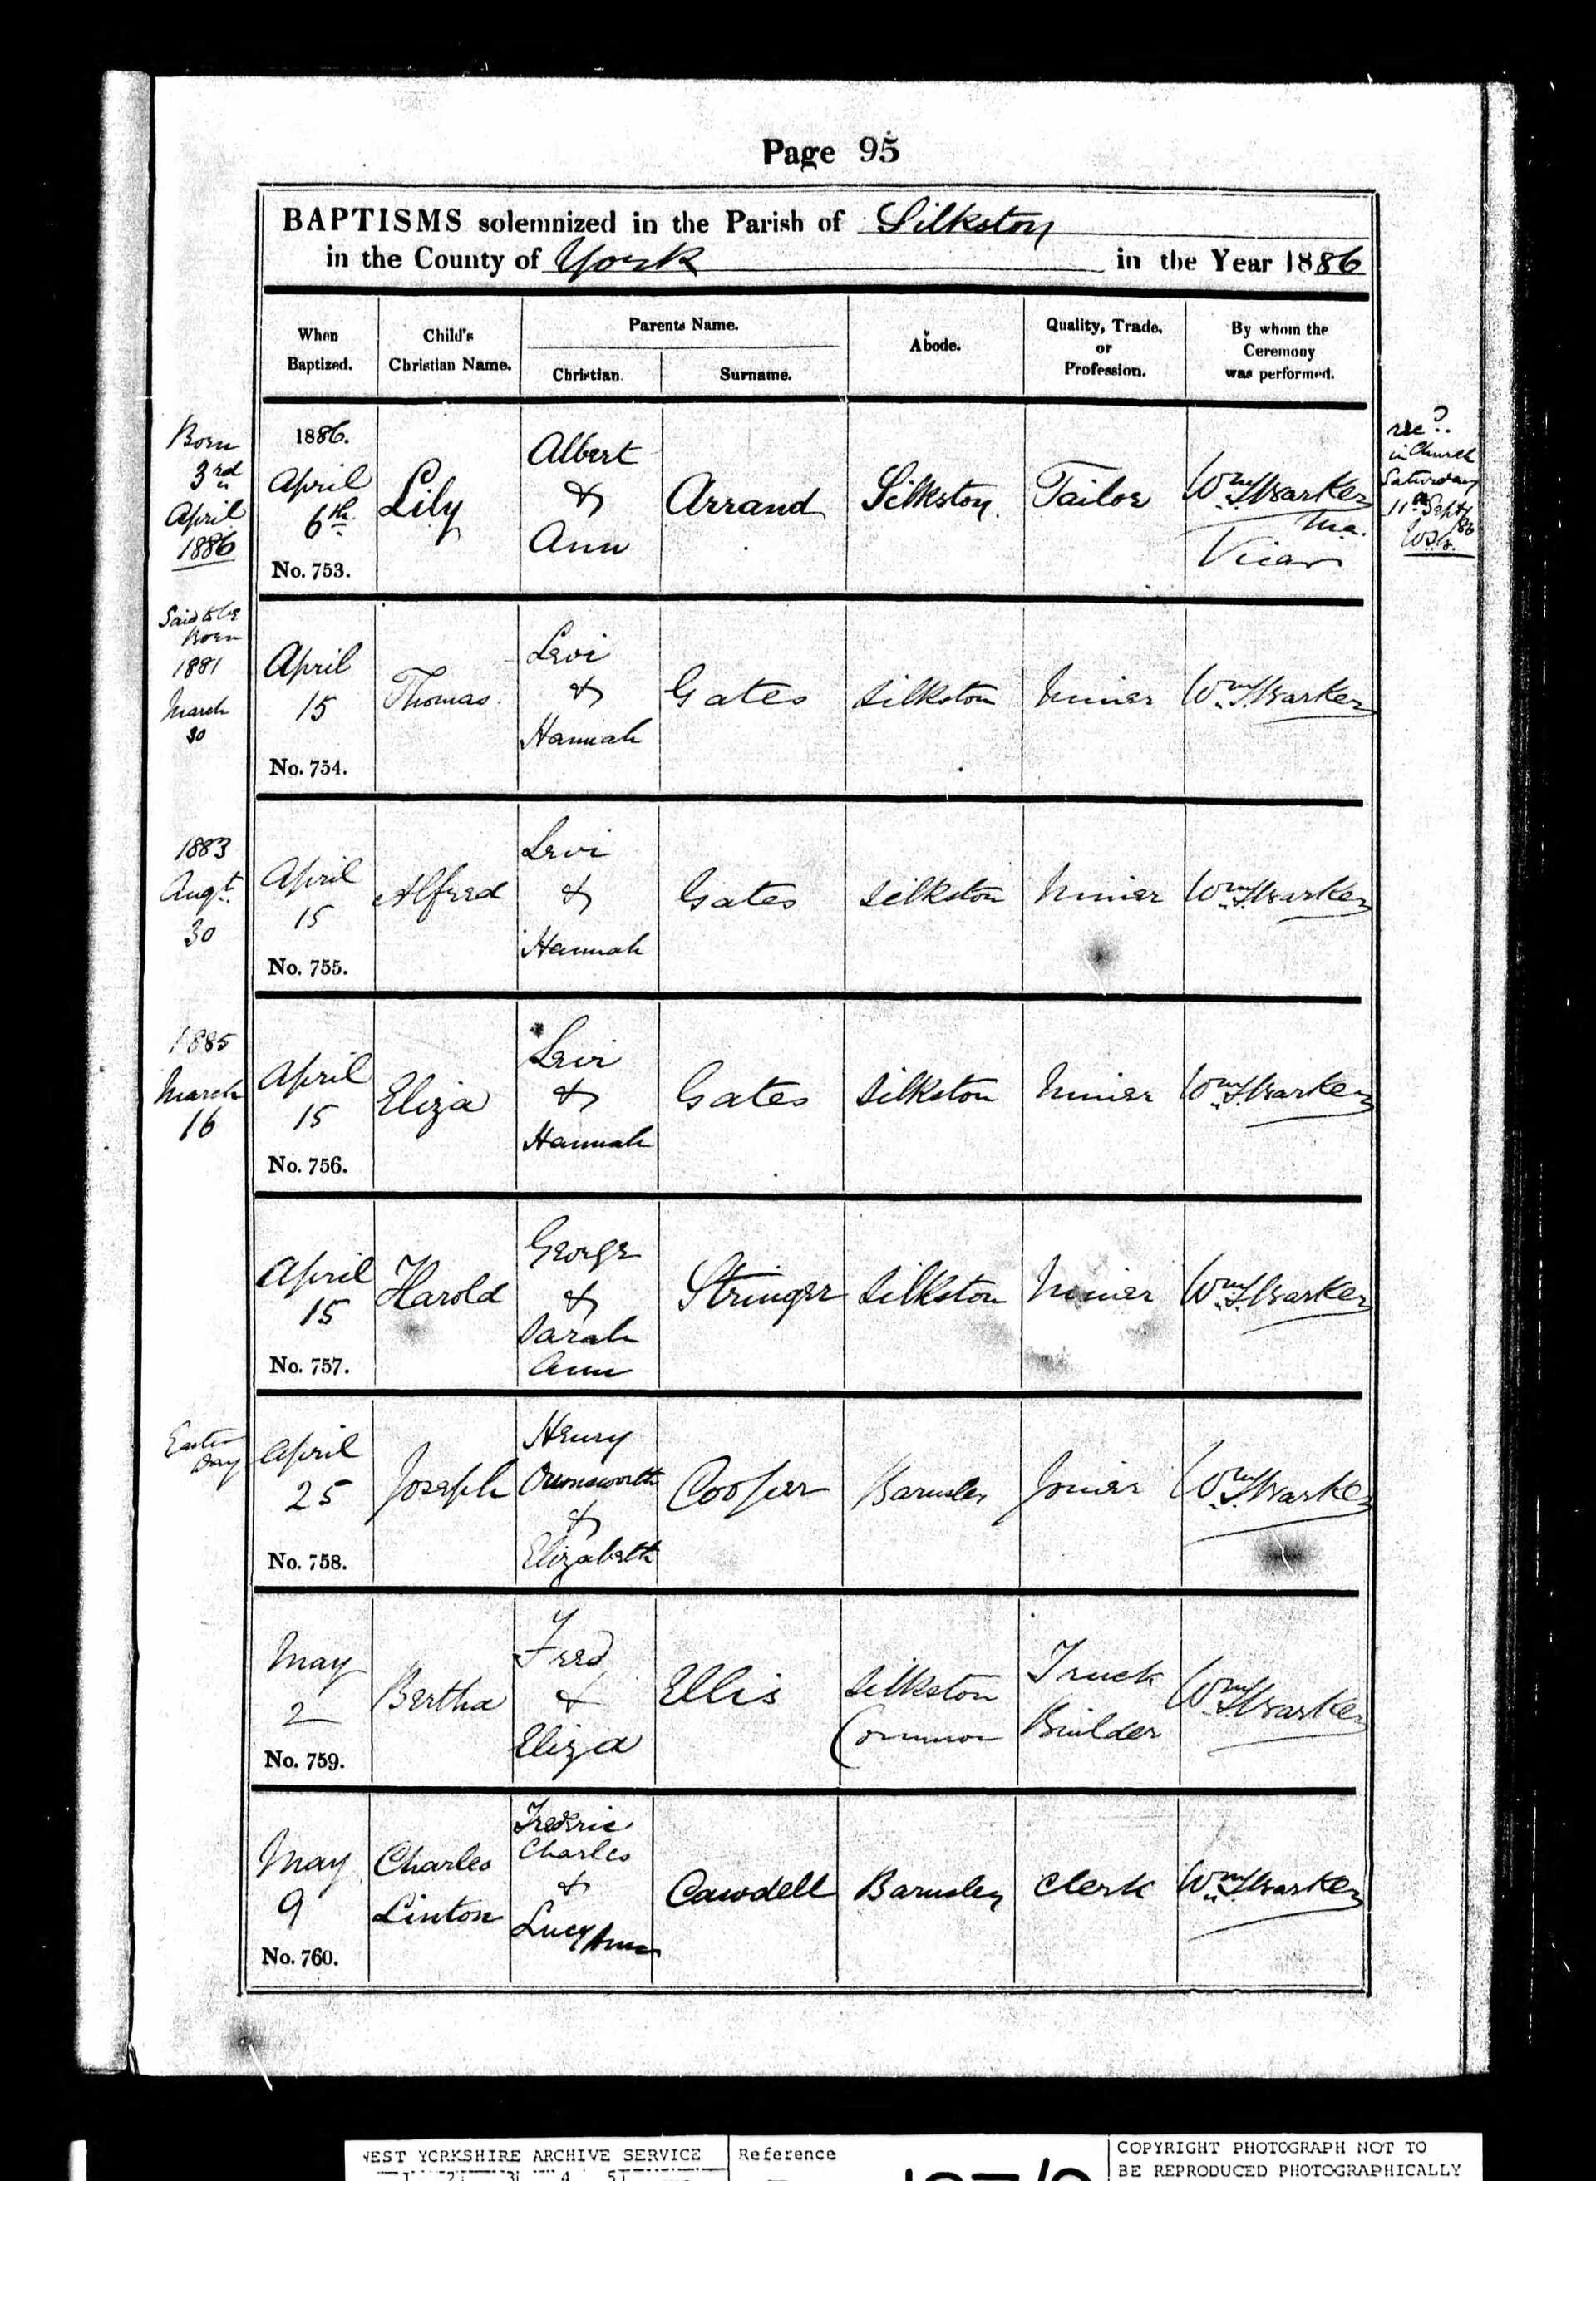 Page 95
BAPTISMS solemnized in the Parish of Silkston
in the County of York in the Year 1886
When Baptized.
Child's Christian Name.
Parents Name.
Christian.
Surname.
Abode.
Quality, Trade, or Profession.
By whom the Ceremony was performed.
Born
3rd
April
1886
1886.
April
6th
No. 753.
Lily
Albert
&
Ann
Arrand
Silkston.
Tailor
Wm S Barker
M.a.
Vicar
recd.
in Church
Saturday
11th Sept
86
Said to be
Born
1881
March
30
April
15
No. 754.
Thomas
Levi
&
Hannah
Gates
Silkston
Miner
Wm S Barker
1883
Augt.
30
April
15
No. 755.
Alfred
Levi
&
Hannah
Gates
Silkston
Miner
Wm S Barker
1885
March
16
April
15
No. 756.
Eliza
Levi
&
Hannah
Gates
Silkston
Miner
Wm S Barker
April
15
No. 757.
Harold
George
&
Sarah
Ann
Stringer
Silkston
Miner
Wm S Barker
Easter
Day
April
25
No. 758.
Joseph
Henry
&
Elizabeth
Cooper
Barnsley
Joiner
Wm S Barker
May
2
No. 759.
Bertha
Fred
&
Eliza
Ellis
Silkston
Common
Truck
Builder
Wm S Barker
May
9
No. 760.
Charles
Linton
Frederic
Charles
&
Lucy Ann
Cawdell
Barnsley
Clerk
Wm S Barker
WEST YORKSHIRE ARCHIVE SERVICE
Reference
COPYRIGHT PHOTOGRAPH NOT TO
BE REPRODUCED PHOTOGRAPHICALLY